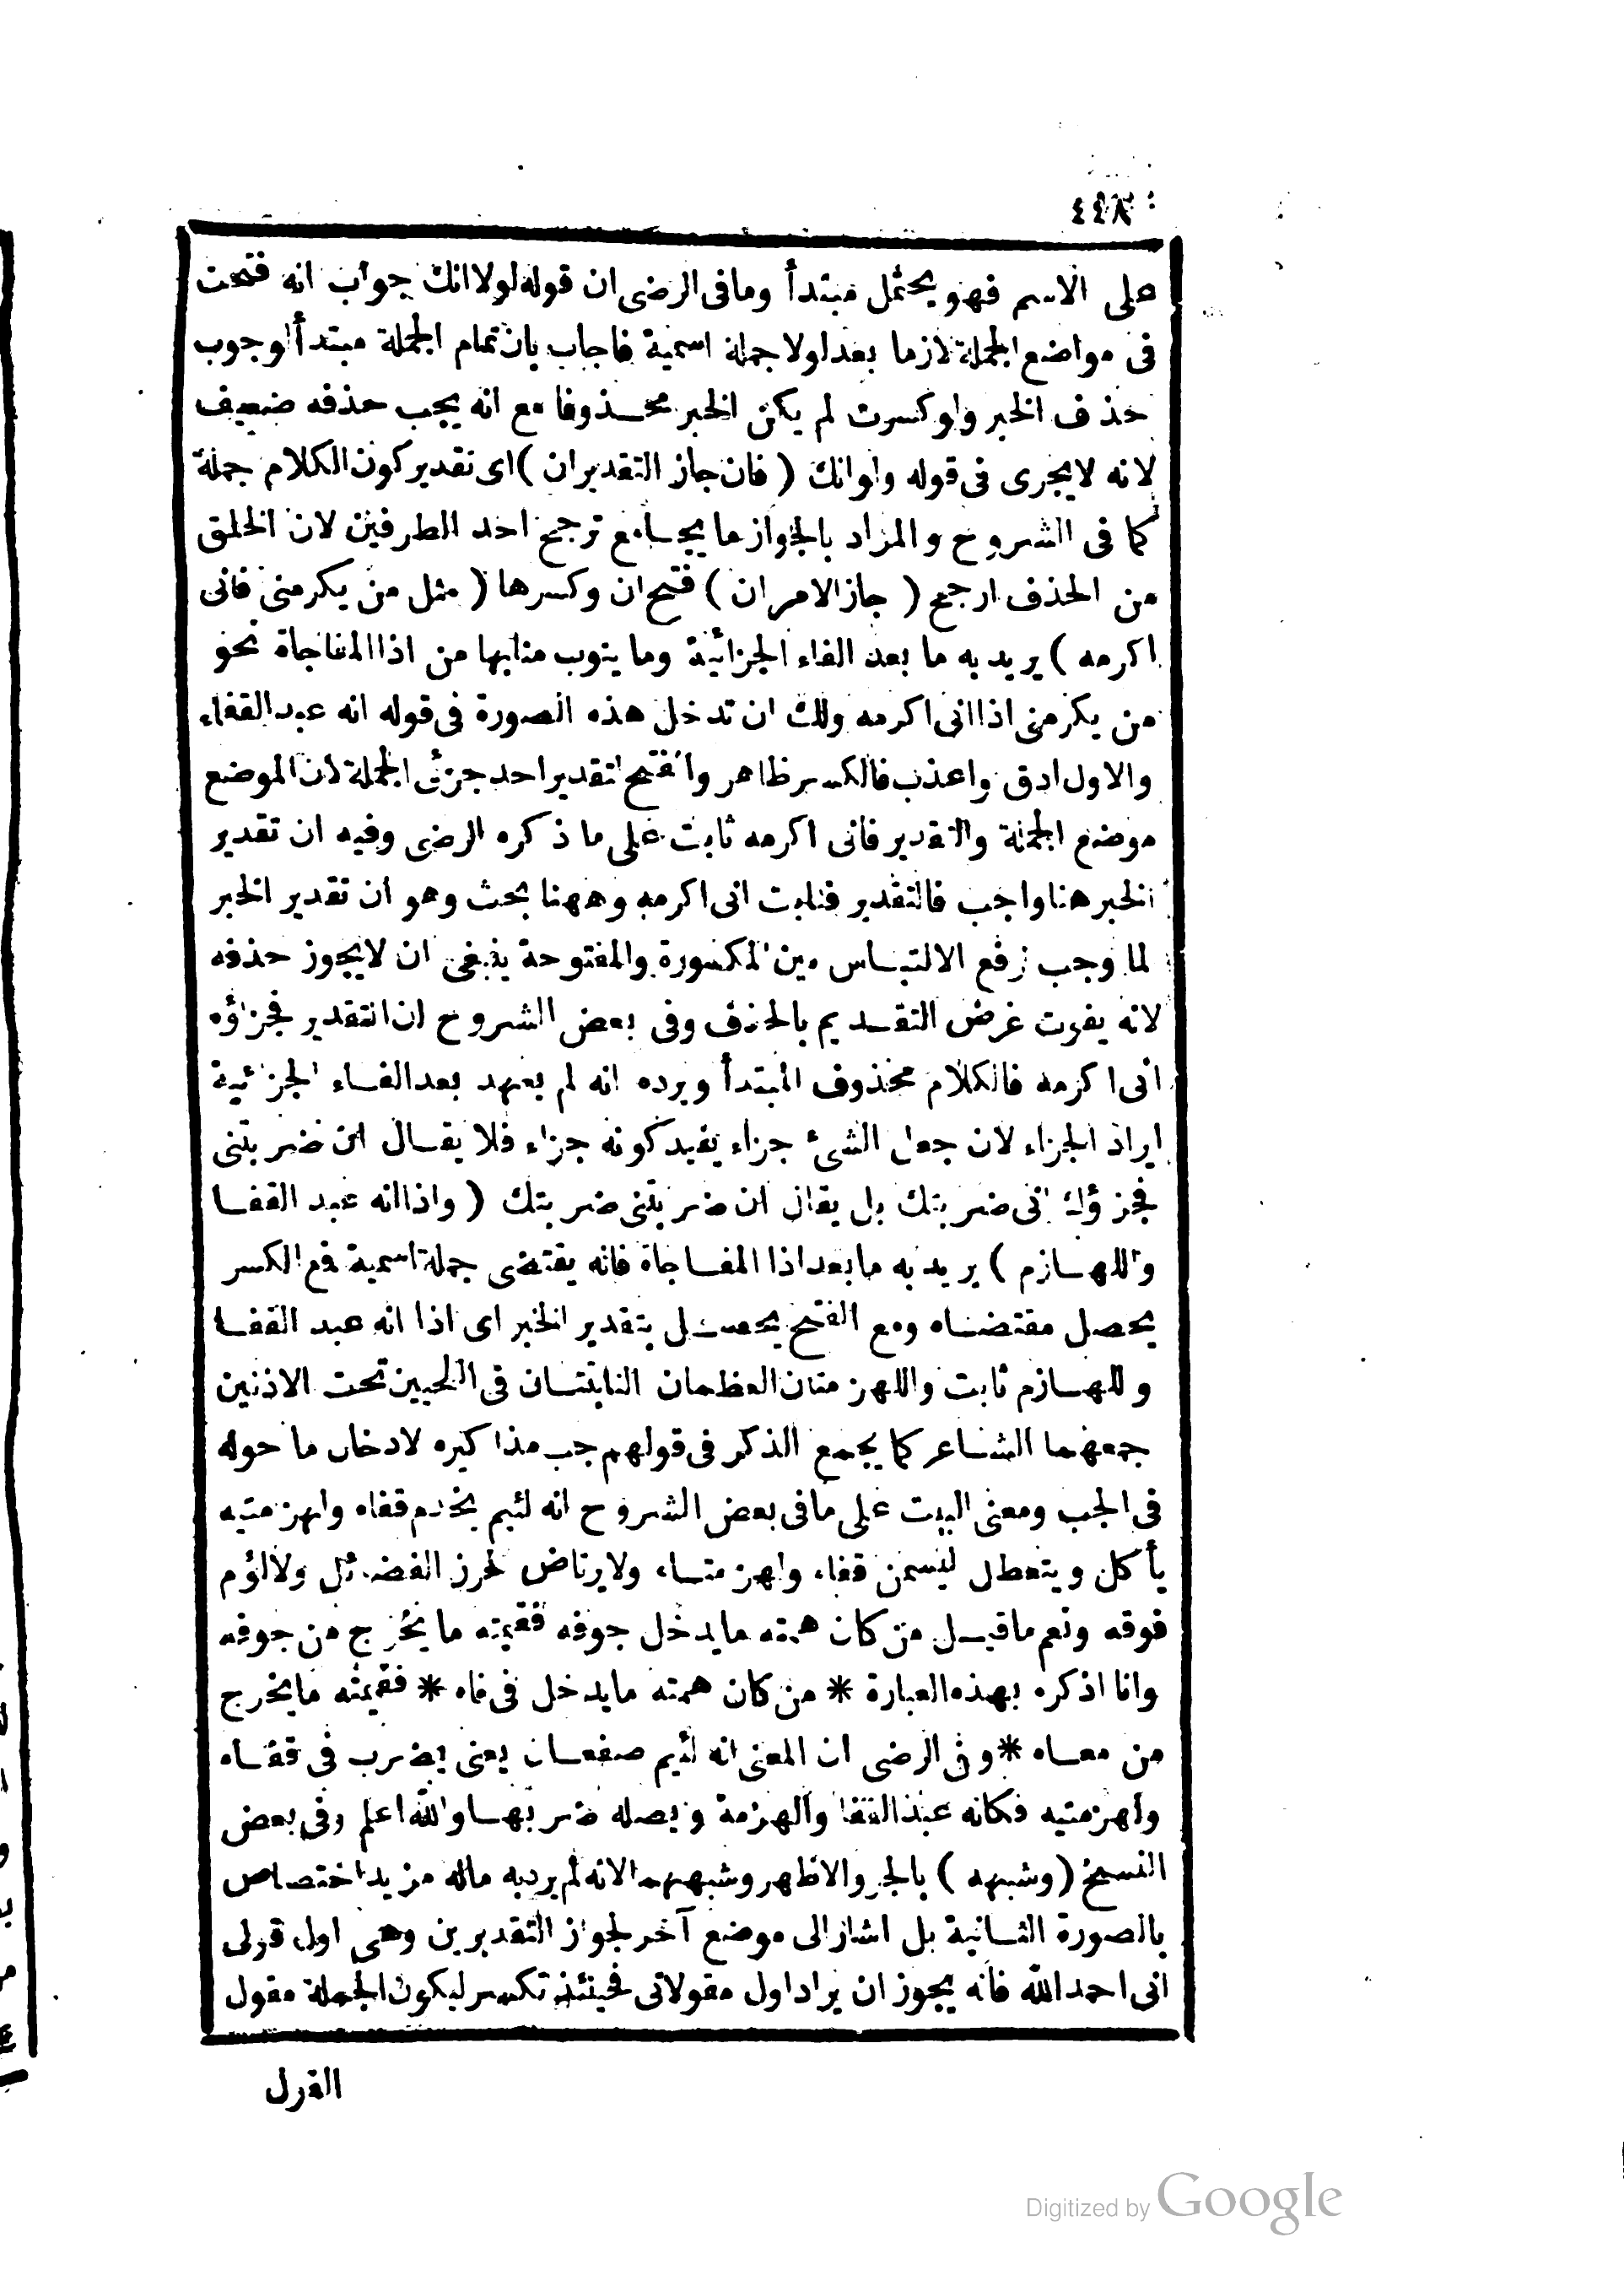 ٤٤٨
على الاسم فهو يحتمل مبتدأ ومافى الرضى ان قوله لولا انك جواب انه فتحت
فى مواضع الجملة لازما بعد لولا جملة اسمية فاجاب بان تمام الجملة مبتدأ لوجوب
حذف الخبر ولو كسرت لم يكن الخبر محذوفا مع انه يجب حذفه ضعيف
لانه لا يجرى فى قوله ولو انك ( فان جاز التقديران ) اى تقدير كون الكلام جملة
كما فى الشروح والمراد بالجواز ما يجامع ترجيح احد الطرفين لان الخلق
من الحذف ارجح ( جاز الامران ) فتح ان وكسرها ( مثل من يكرمنى فانى
اكرمه ) يريد به ما بعد الفاء الجزائية وما ينوب منابها من اذا المفاجاة نحو
من يكرمنى اذا انى اكرمه ولك ان تدخل هذه الصورة فى قوله انه عبد القفاء
والاول ادق واعذب فالكسر ظاهر والفتح لتقدير احد جزئى الجملة لان الموضع
موضع الجملة والتقدير فانى اكرمه ثابت على ما ذكره الرضى وفيه ان تقدير
الخبر هنا واجب فالتقدير فثابت انى اكرمه وههنا بحث وهو ان تقدير الخبر
لما وجب لرفع الالتباس بين المكسورة والمفتوحة ينبغى ان لا يجوز حذفه
لانه يفوت غرض التقديم بالحذف وفى بعض الشروح ان التقدير فجزاؤه
انى اكرمه فالكلام محذوف المبتدأ ويرده انه لم يعهد بعد الفاء الجزئية
ايراد الجزاء لان جعل الشئ جزاء يفيد كونه جزاء فلا يقال ان ضربتنى
فجزؤك انى ضربتك بل يقال ان ضربتنى ضربتك ( واذا انه عبد القفا
واللهازم ) يريد به ما بعد اذا المفاجاة فانه يقتضى جملة اسمية فمع الكسر
يحصل مقتضاه ومع الفتح يحصل بتقدير الخبر اى اذا انه عبد القفا
واللهازم ثابت واللهزمتان العظمان الناتئتان فى اللحيين تحت الاذنين
جمعهما الشاعر كما يجمع الذكر فى قولهم جب مذاكيره لادخال ما حوله
فى الجب ومعنى البيت على ما فى بعض الشروح انه لئيم يخدم قفاه ولهزمتيه
يأكل ويتعطل ليسمن قفاه ولهزمتاه ولا يرتاض لحرز الفضائل ولا لؤم
فوقه ونعم ما قيل من كان همته ما يدخل جوفه فقيمته ما يخرج من جوفه
وانا اذكره بهذه العبارة * من كان همته ما يدخل فى فاه * فقيمته ما يخرج
من معاه * وفى الرضى ان المعنى انه لئيم صفعان يعنى يضرب فى قفاه
ولهزمتيه فكانه عبد القفا والهزمة ويصله ضربهما والله اعلم وفى بعض
النسخ ( وشبهه ) بالجر والاظهر وشبههما لانه لم يرد به ماله مزيد اختصاص
بالصورة الثانية بل اشار الى موضع آخر لجواز التقديرين وهى اول قولى
انى احمد الله فانه يجوز ان يراد اول مقولاتى فحينئذ تكسر ليكون الجملة مقول
القول
Digitized by Google